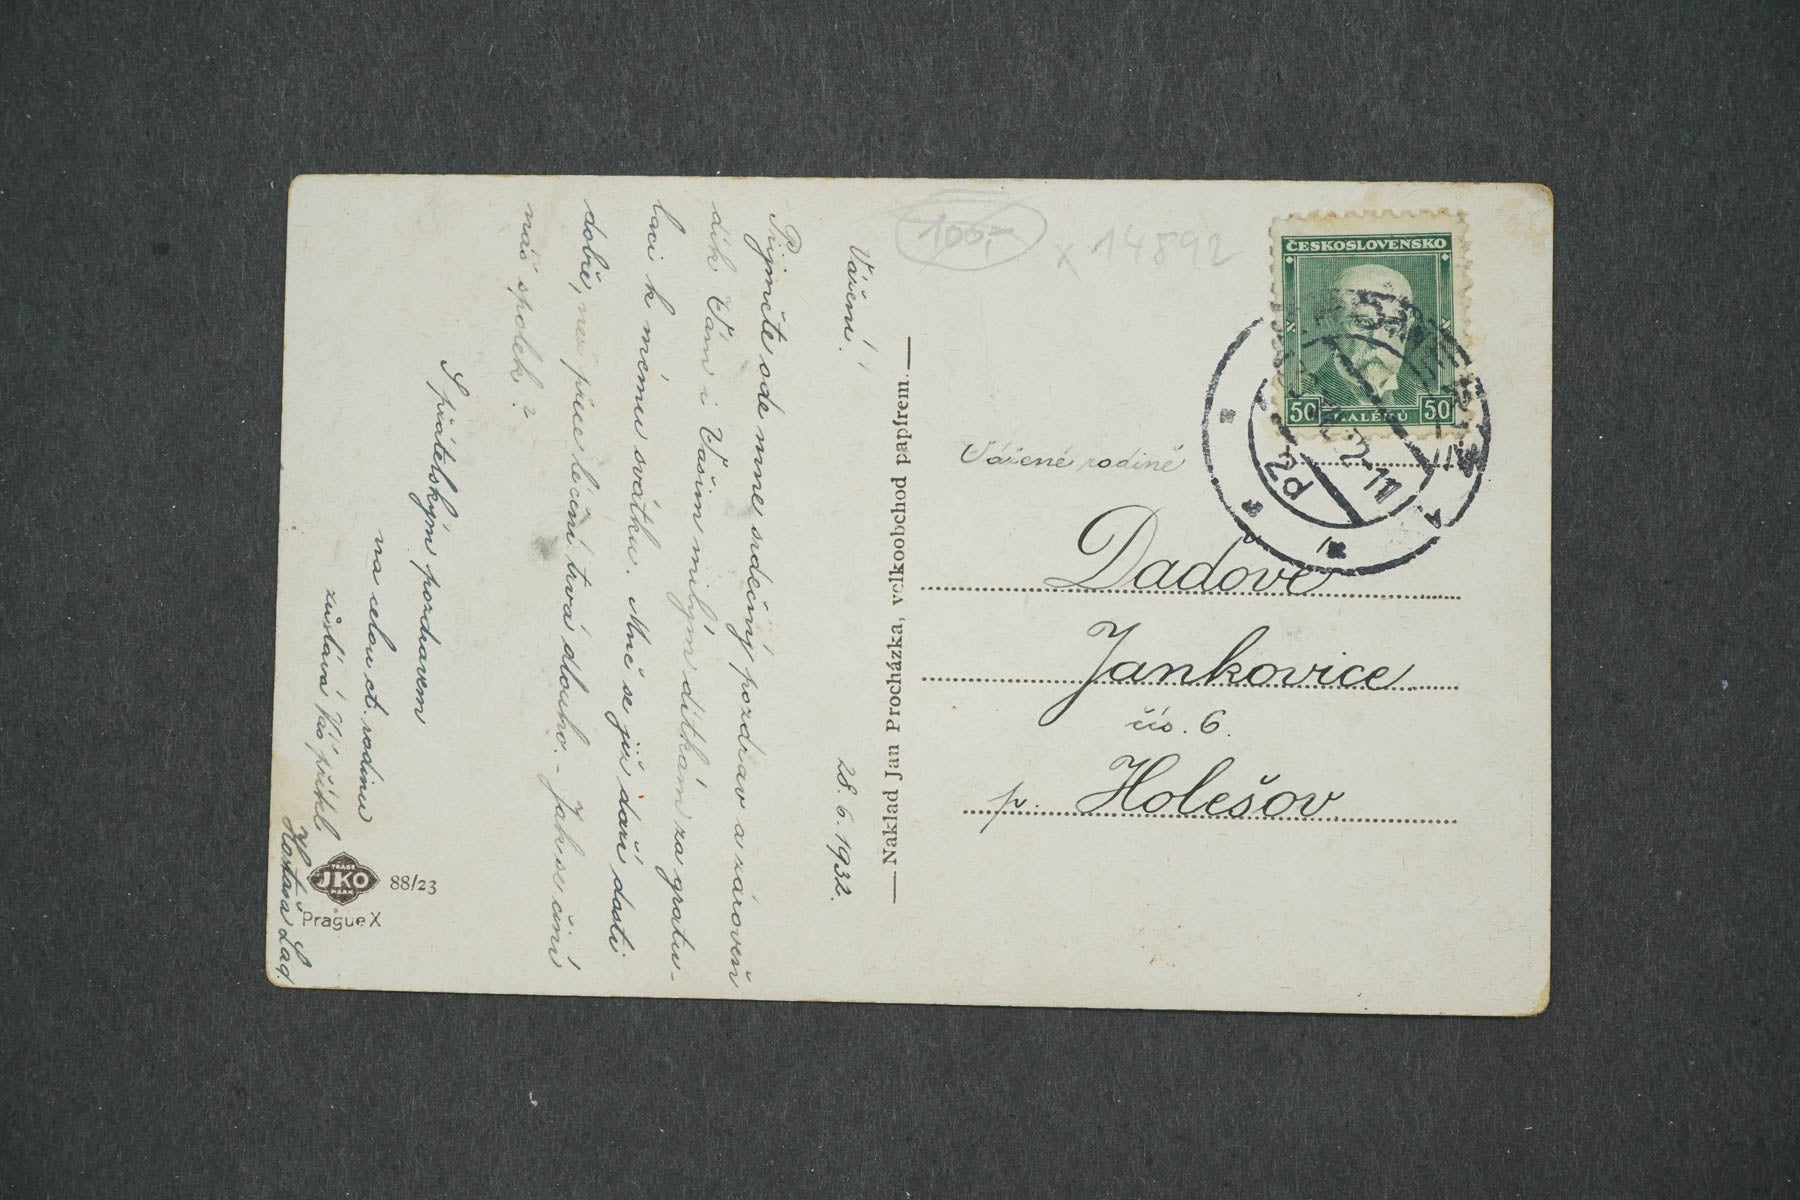 Vážení!
28. 6. 1932.
Přijměte ode mne srdečný pozdrav a zároveň
dík Vám i Vašim milým dítkám za gratu-
laci k mému svátku. Mně se již daří dosti
dobře, než přece léčení trvá dlouho. - Jak se činí
náš spolek?
S přátelským pozdravem
na celou ct. rodinu
zůstává Váš přítel
Lad.
JKO
TRADE
MARK
88/23
Prague X
Naklad Jan Procházka, velkoobchod papírem.
100,-
x 14892
ČESKOSLOVENSKO
50 HALÉŘŮ 50
Vážené rodině
Dadově
Jankovice
čís. 6.
p. Holešov